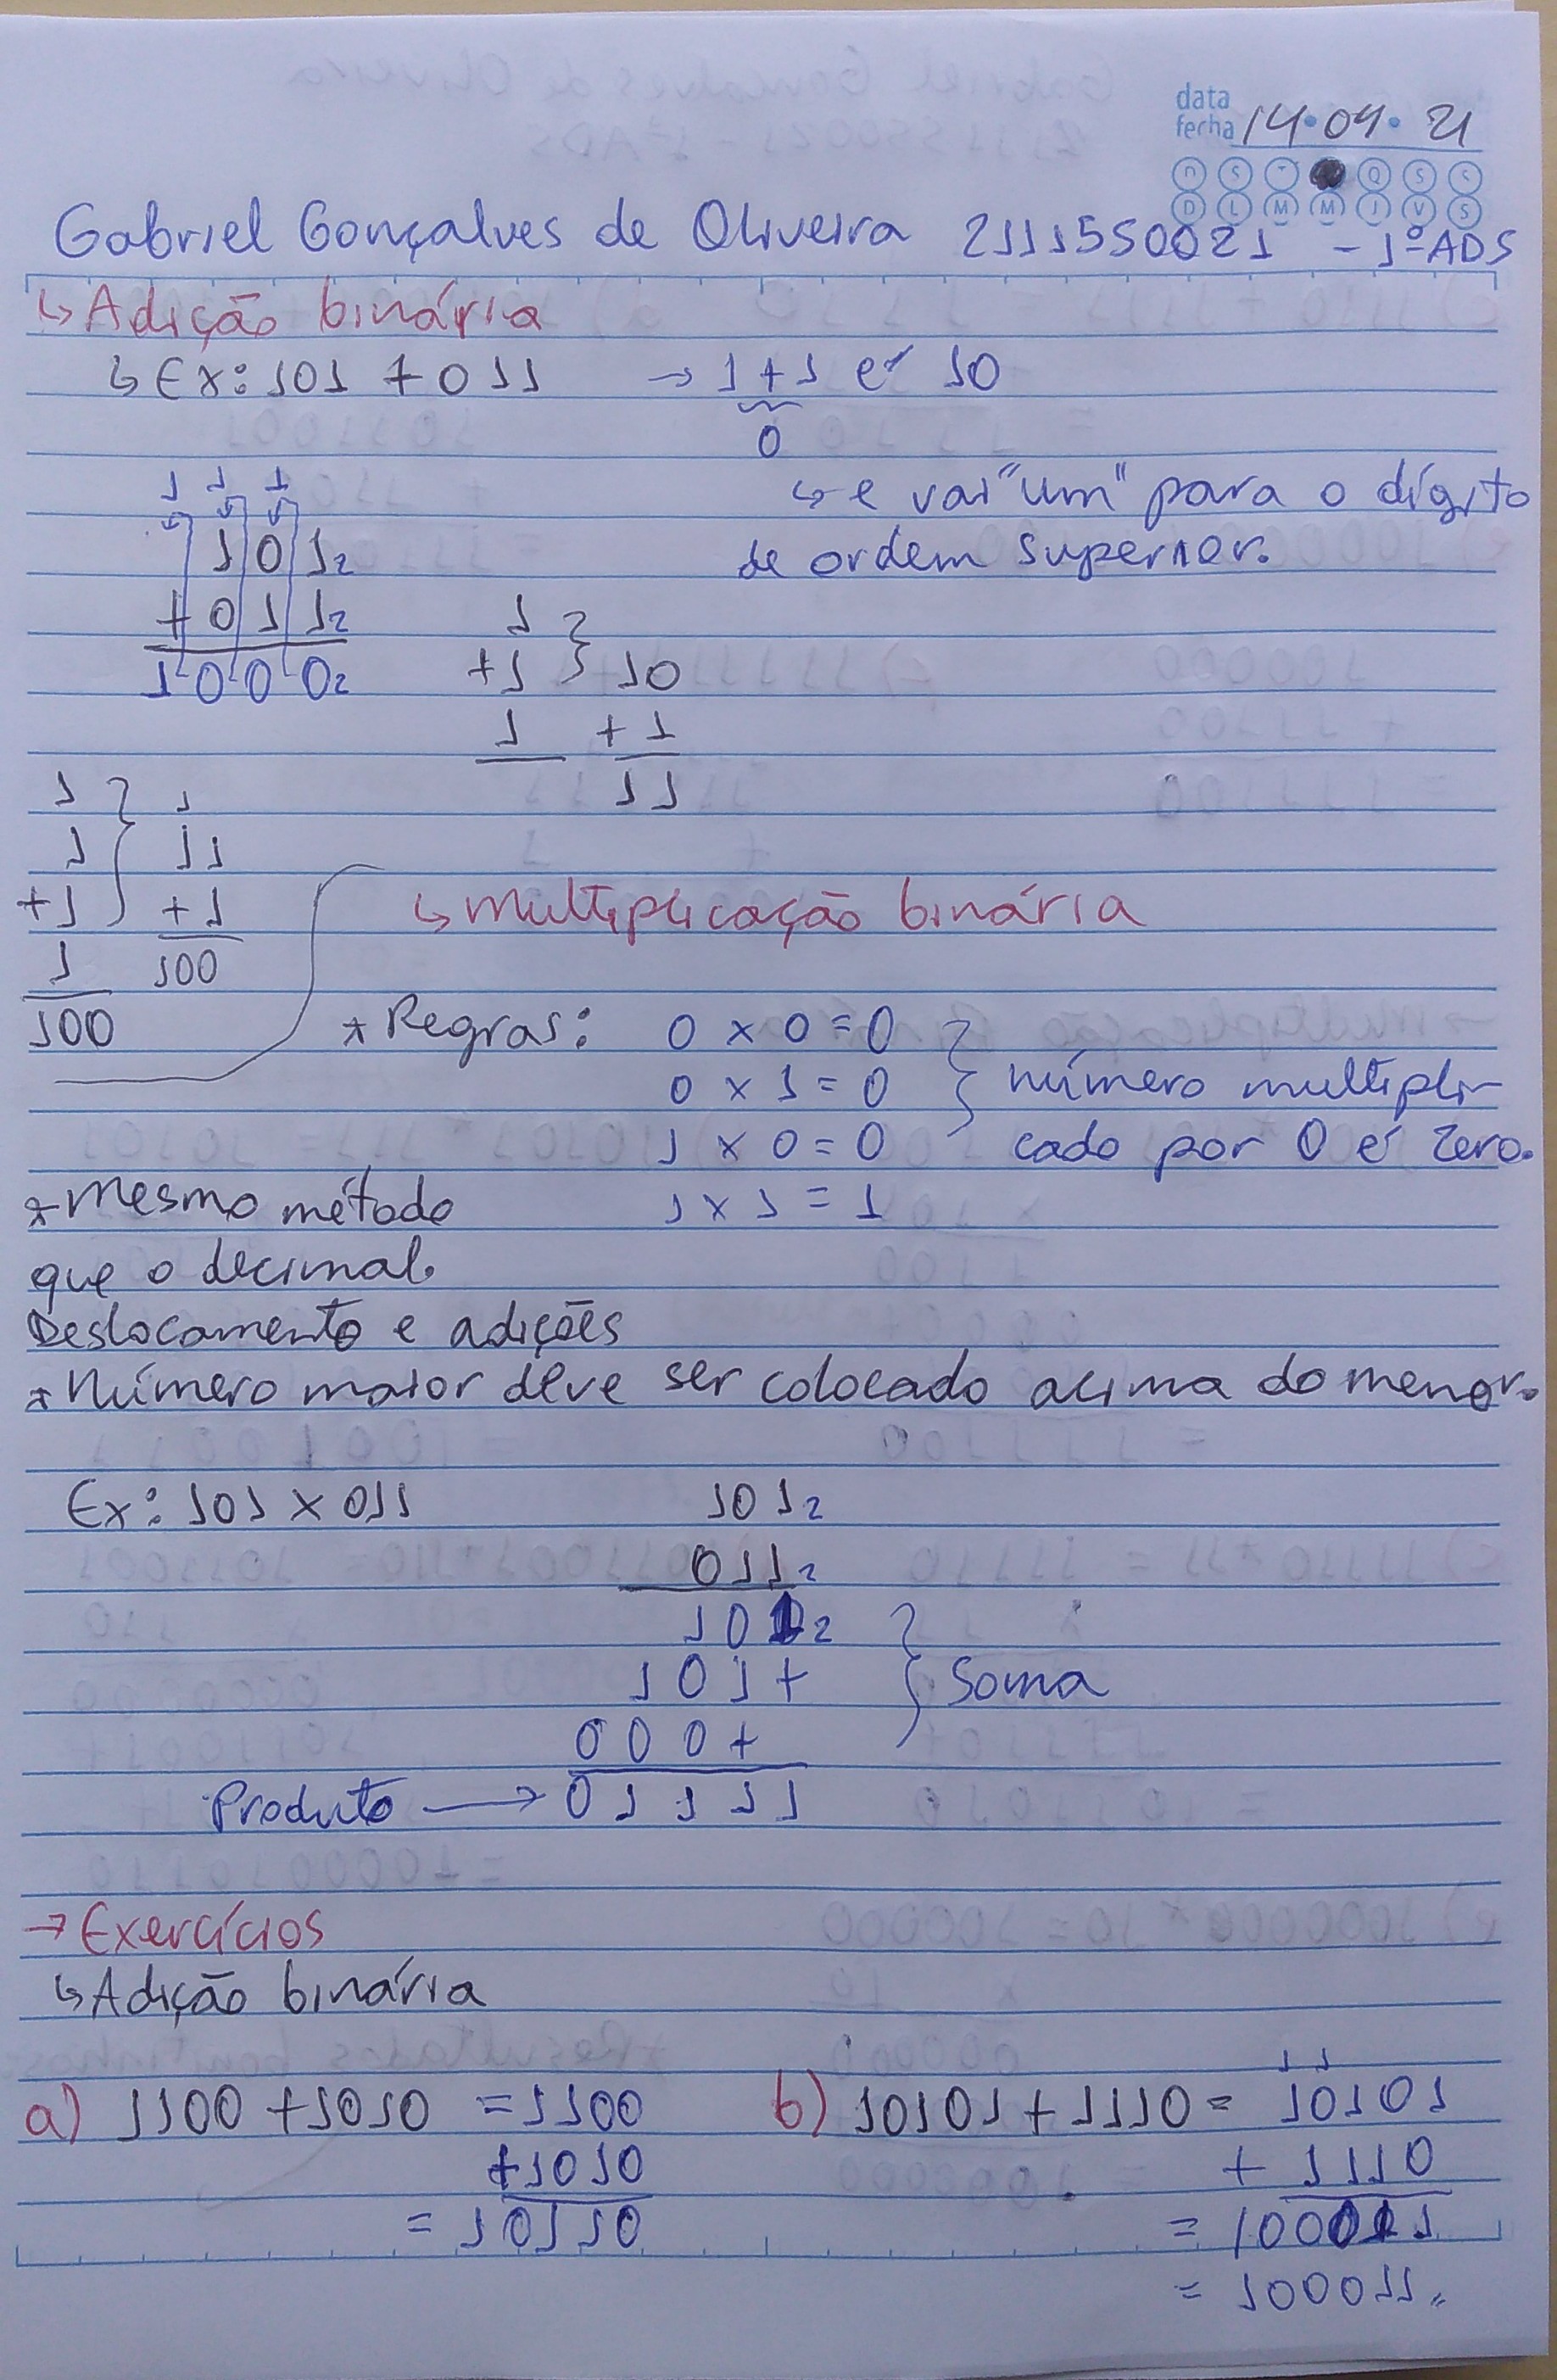 data
fecha 14·04·21
D S T Q S S
D L M M J V S
Gabriel Gonçalves de Oliveira 2111550021 - 1º ADS
↳ Adição binária
↳ Ex: 101 + 011 → 1 + 1 é 10
0
↳ e vai "um" para o dígito
de ordem superior.
1 1 1
1 0 1₂
+ 0 1 1₂
1 0 0 0₂
1
+1 } 10
1 + 1
11
1 } 1
1 11
+1 +1
1 100
100
↳ Multiplicação binária
* Regras: 0 x 0 = 0
0 x 1 = 0 } número multipli-
1 x 0 = 0 cado por 0 é zero.
1 x 1 = 1
* Mesmo método
que o decimal.
Deslocamento e adições
* Número maior deve ser colocado acima do menor.
Ex: 101 x 011
101₂
011₂
101₂
101+ } Soma
000+
Produto → 0 1 1 1 1
→ Exercícios
↳ Adição binária
a) 1100 + 1010 = 1100
+1010
= 10110
b) 10101 + 1110 = 10101
1 1
+ 1110
= 100011
= 100011,,